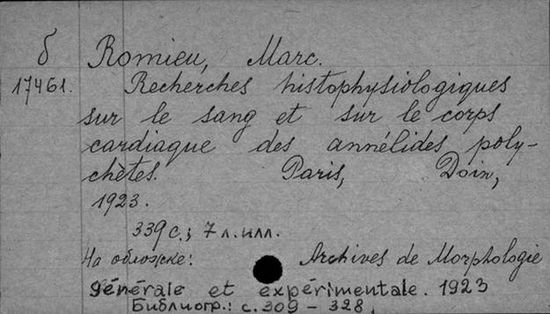 б Romieu, Marc.
17461. Recherches histophysiologiques
sur le sang et sur le corps
cardiaque des annélides poly-
chètes. Paris, Doin,
1923.
339 с.; 7 л. илл.
На обложке: Archives de Morphologie
générale et expérimentale. 1923
Библиогр.: с. 309 – 328.